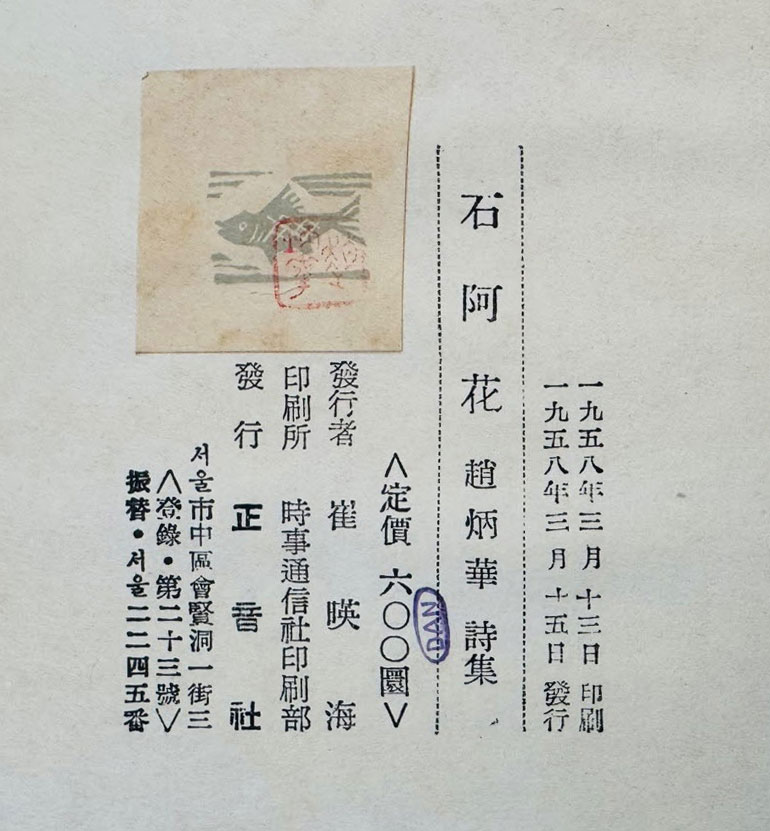 一九五八年三月十三日 印刷
一九五八年三月十五日 發行
石阿花 趙炳華 詩集
DAN
〈定價 六〇〇圜〉
發行者 崔暎海
印刷所 時事通信社印刷部
發行 正音社
서울市中區會賢洞一街三
〈登錄・第二十三號〉
振替・서울二二四五番